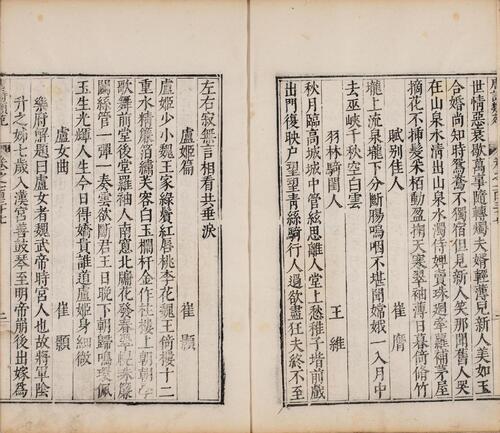 世情惡衰歇萬事隨轉燭夫婿輕薄兒新人美如玉
合婚尚知時鴛鴦不獨宿但見新人笑那聞舊人哭
在山泉水清出山泉水濁侍婢賣珠迴牽羅補茅屋
摘花不插髮采柏動盈掬天寒翠袖薄日暮倚脩竹
賦別佳人 崔膺
壠上流泉壠下分斷腸嗚咽不堪聞嫦娥一入月中
去巫峽千秋空白雲
羽林騎閨人 王維
秋月臨高城城中管絃思離人堂上愁稚子堦前戲
出門復映戶望望青絲騎行人過欲盡狂夫終不至
左右寂無言相看共垂淚
盧姬篇 崔顥
盧姬少小魏王家綠鬢紅唇桃李花魏王倚樓十二
重水精簾箔繡芙蓉白玉欄杆金作柱樓上朝朝學
歌舞前堂後堂羅袖人南窗北牖花發春翠幌珠簾
鬬絲管一彈一奏雲欲斷君王日晚下朝歸鳴環佩
玉生光輝人生今日得嬌貴誰道盧姬身細微
盧女曲 崔顥
樂府解題曰盧女者魏武帝時宮人也故將軍陰
升之姊七歲入漢宮善鼓琴至明帝崩後出嫁爲